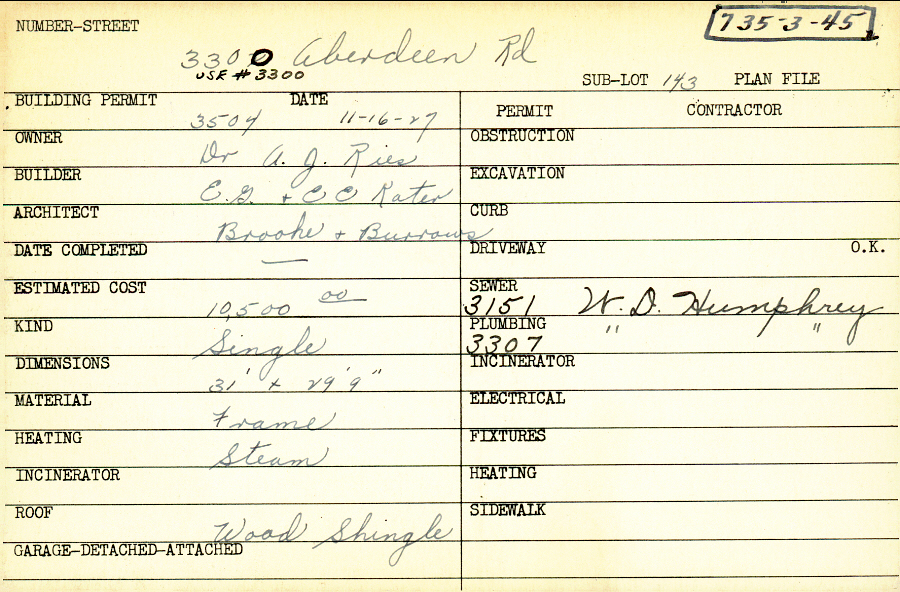 735-3-45
NUMBER-STREET
3300 Aberdeen Rd
USE #3300
SUB-LOT 143 PLAN FILE
BUILDING PERMIT DATE
3504 11-16-27
PERMIT CONTRACTOR
OWNER
Dr A. J. Ries
OBSTRUCTION
BUILDER
E.G. + C C Kater
EXCAVATION
ARCHITECT
Brooke + Burrows
CURB
DATE COMPLETED
—
DRIVEWAY O.K.
ESTIMATED COST
10,500 00
SEWER
3151 W. D. Humphrey
KIND
Single
PLUMBING " "
3307
DIMENSIONS
31' x 29'9"
INCINERATOR
MATERIAL
Frame
ELECTRICAL
HEATING
Steam
FIXTURES
INCINERATOR
HEATING
ROOF
Wood Shingle
SIDEWALK
GARAGE-DETACHED-ATTACHED